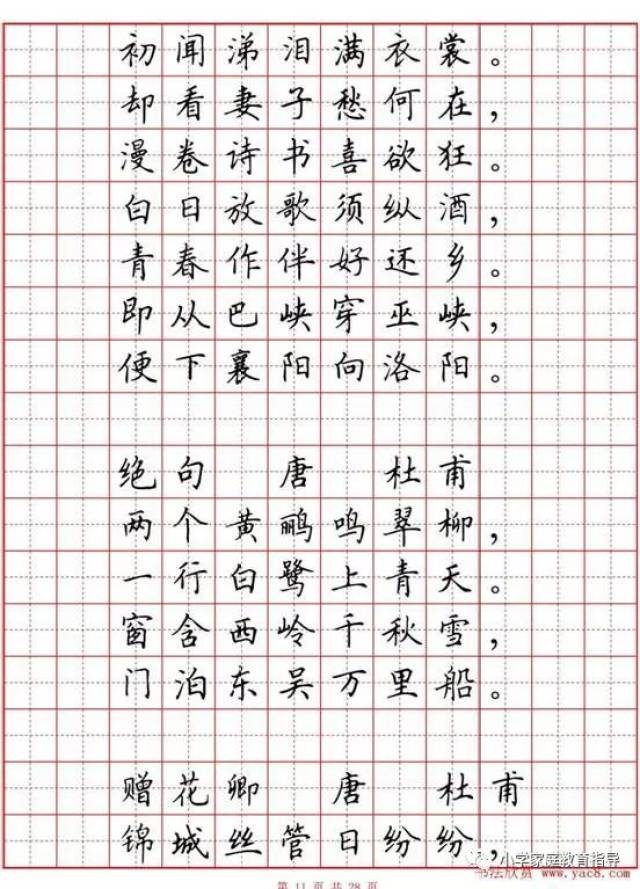 初闻涕泪满衣裳。
却看妻子愁何在，
漫卷诗书喜欲狂。
白日放歌须纵酒，
青春作伴好还乡。
即从巴峡穿巫峡，
便下襄阳向洛阳。
绝句 唐 杜甫
两个黄鹂鸣翠柳，
一行白鹭上青天。
窗含西岭千秋雪，
门泊东吴万里船。
赠花卿 唐 杜甫
锦城丝管日纷纷，
小学家庭教育指导
书法欣赏 www.yac8.com
第 11 页 共 28 页